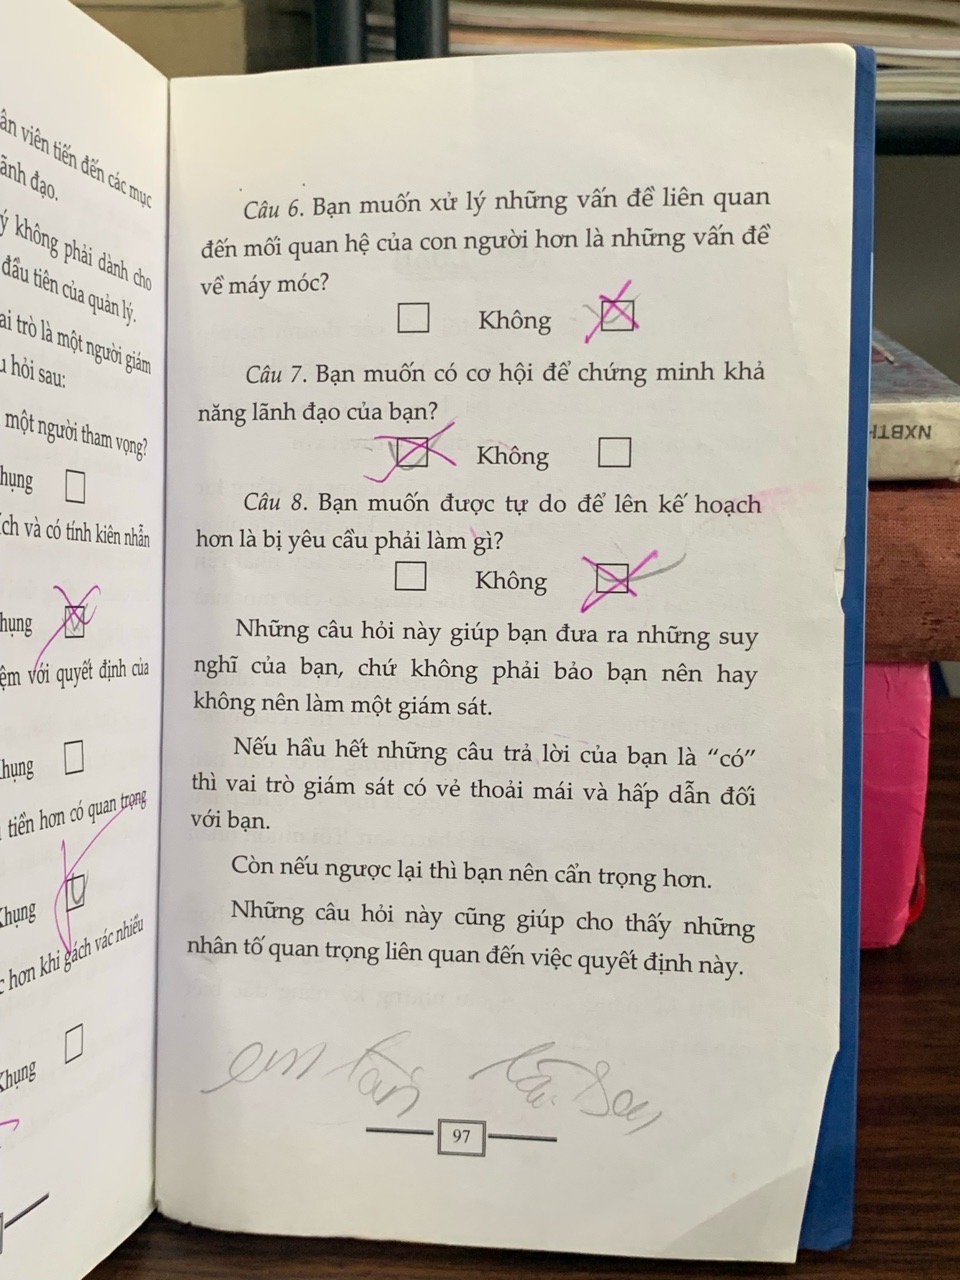 ân viên tiến đến các mục
ãnh đạo.
ý không phải dành cho
đầu tiên của quản lý.
ai trò là một người giám
u hỏi sau:
một người tham vọng?
hụng
ích và có tính kiên nhẫn
hụng
ệm với quyết định của
hụng
tiền hơn có quan trọng
Khụng
c hơn khi gách vác nhiều
Khụng
Câu 6. Bạn muốn xử lý những vấn đề liên quan
đến mối quan hệ của con người hơn là những vấn đề
về máy móc?
Không
Câu 7. Bạn muốn có cơ hội để chứng minh khả
năng lãnh đạo của bạn?
Không
Câu 8. Bạn muốn được tự do để lên kế hoạch
hơn là bị yêu cầu phải làm gì?
Không
Những câu hỏi này giúp bạn đưa ra những suy
nghĩ của bạn, chứ không phải bảo bạn nên hay
không nên làm một giám sát.
Nếu hầu hết những câu trả lời của bạn là “có”
thì vai trò giám sát có vẻ thoải mái và hấp dẫn đối
với bạn.
Còn nếu ngược lại thì bạn nên cẩn trọng hơn.
Những câu hỏi này cũng giúp cho thấy những
nhân tố quan trọng liên quan đến việc quyết định này.
97
NXBT